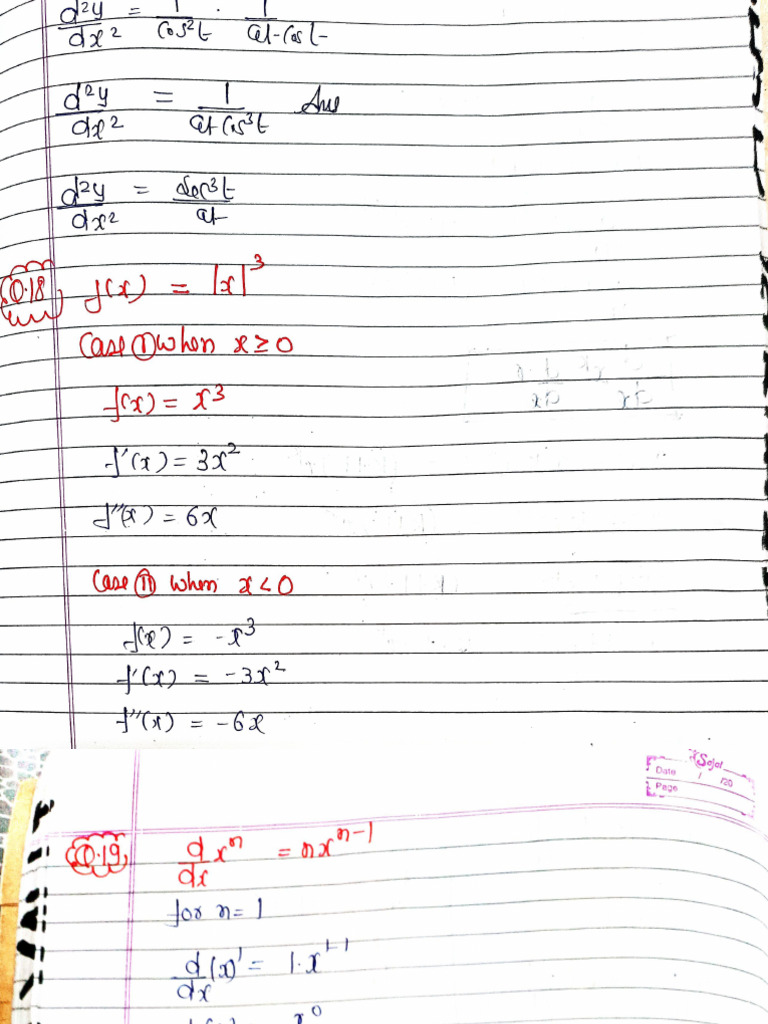 d²y/dx² = 1/cos²t · 1/at cos t
d²y/dx² = 1/at cos³t Ans
d²y/dx² = sec³t/at
Q.18 f(x) = |x|³
Case (I) when x ≥ 0
f(x) = x³
f'(x) = 3x²
f''(x) = 6x
Case (II) when x < 0
f(x) = -x³
f'(x) = -3x²
f''(x) = -6x
Sojal
Date / /20
Page
Q.19 d/dx xⁿ = nxⁿ⁻¹
for n = 1
d/dx (x)¹ = 1·x¹⁻¹
x⁰